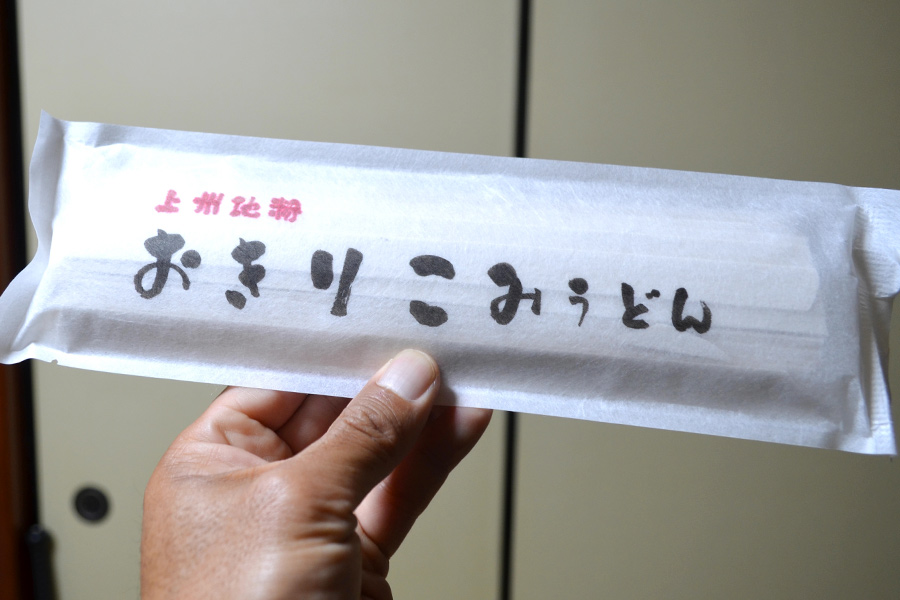 上州地粉
おきりこみうどん